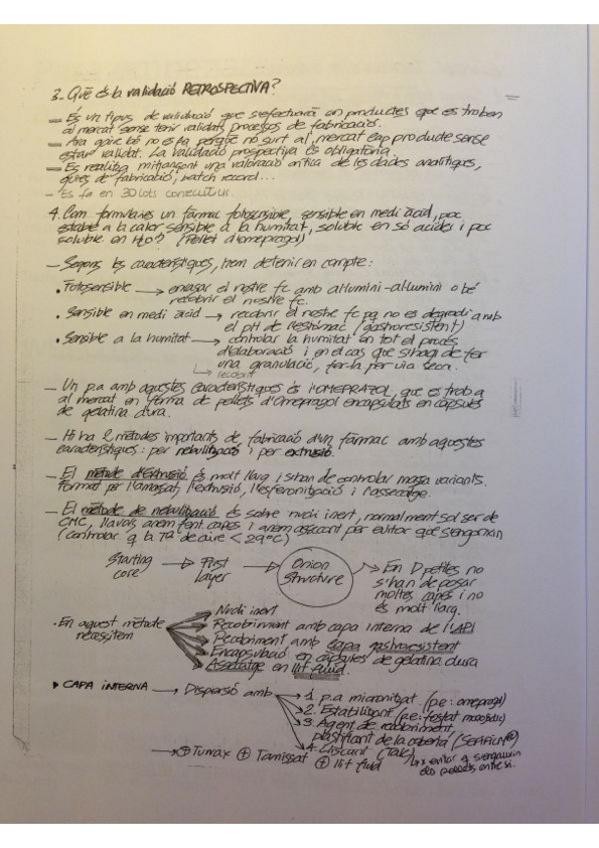 3. Què és la validació RETROSPECTIVA?
— És un tipus de validació que s'efectuarà en productes que es troben
al mercat sense tenir validats processos de fabricació.
— Ara gaire bé no es fa perquè no surt al mercat cap producte sense
estar validat. La validació prospectiva és obligatòria.
— Es realitza mitjançant una valoració crítica de les dades analítiques,
guies de fabricació, batch record...
- Es fa en 30 lots consecutius.
4. Com formularies un fàrmac fotosensible, sensible en medi àcid, poc
estable a la calor, sensible a la humitat, soluble en sò àcides i poc
soluble en H2O? (Pellet d'omeprazol)
— Segons les característiques, hem de tenir en compte:
• Fotosensible → envasar el nostre fc amb al·lumini-al·lumini o bé
recobrir el nostre fc.
• Sensible en medi àcid → recobrir el nostre fc pq no es degradi amb
el pH de l'estómac (gastroresistent)
• Sensible a la humitat → controlar la humitat en tot el procés
d'elaboració i en el cas que s'hagi de fer
una granulació, fer-la per via seca.
↳ recobrir
— Un p.a amb aquestes característiques és l'OMEPRAZOL, que es troba
al mercat en forma de pellets d'Omeprazol encapsulats en càpsules
de gelatina dura.
— Hi ha 2 mètodes importants de fabricació d'un fàrmac amb aquestes
característiques: per nebulització i per extrusió.
— El mètode d'Extrusió és molt llarg i s'han de controlar massa variants.
Format per l'amassat, l'extrusió, l'esferonització i l'assecatge.
— El mètode de nebulització és sobre nucli inert, normalment sol ser de
CMC, llavors anem fent capes i anem assecant per evitar que s'enganxin
(controlar q la Tª de l'aire < 29ºC)
Starting core → First Layer → Onion Structure → En D petites no
s'han de posar
moltes capes i no
és molt llarg.
• En aquest mètode necessitem
Nucli inert
Recobriment amb capa interna de l'API
Recobriment amb capa gastroresistent
Encapsulació en càpsules de gelatina dura
Assecatge en llit fluid.
▶ CAPA INTERNA → Dispersió amb
1. p.a micronitzat (p.e: omeprazol)
2. Estabilitzant (p.e: fosfat monosòdic)
3. Agent de recobriment
plastificant de la coberta (SEPIFILM®)
4. Lliscant (Talc) ↳ x evitar q s'enganxin
els pellets entre si.
→ ⊕ Turmax ⊕ Tamissat ⊕ llit fluid